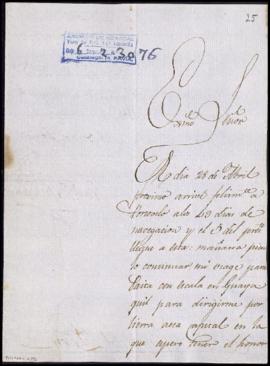 25
76
Exmo Señor
El dia 28 de Abril
proximo arrivé felizmte a
a los 43 dias de
navegacion y el 5 del
llegue a esta: mañana
continuar mi viage para
Paita con escala en Guaya
quil para dirigirme por
tierra a esa capital en la
que espero tener el honor